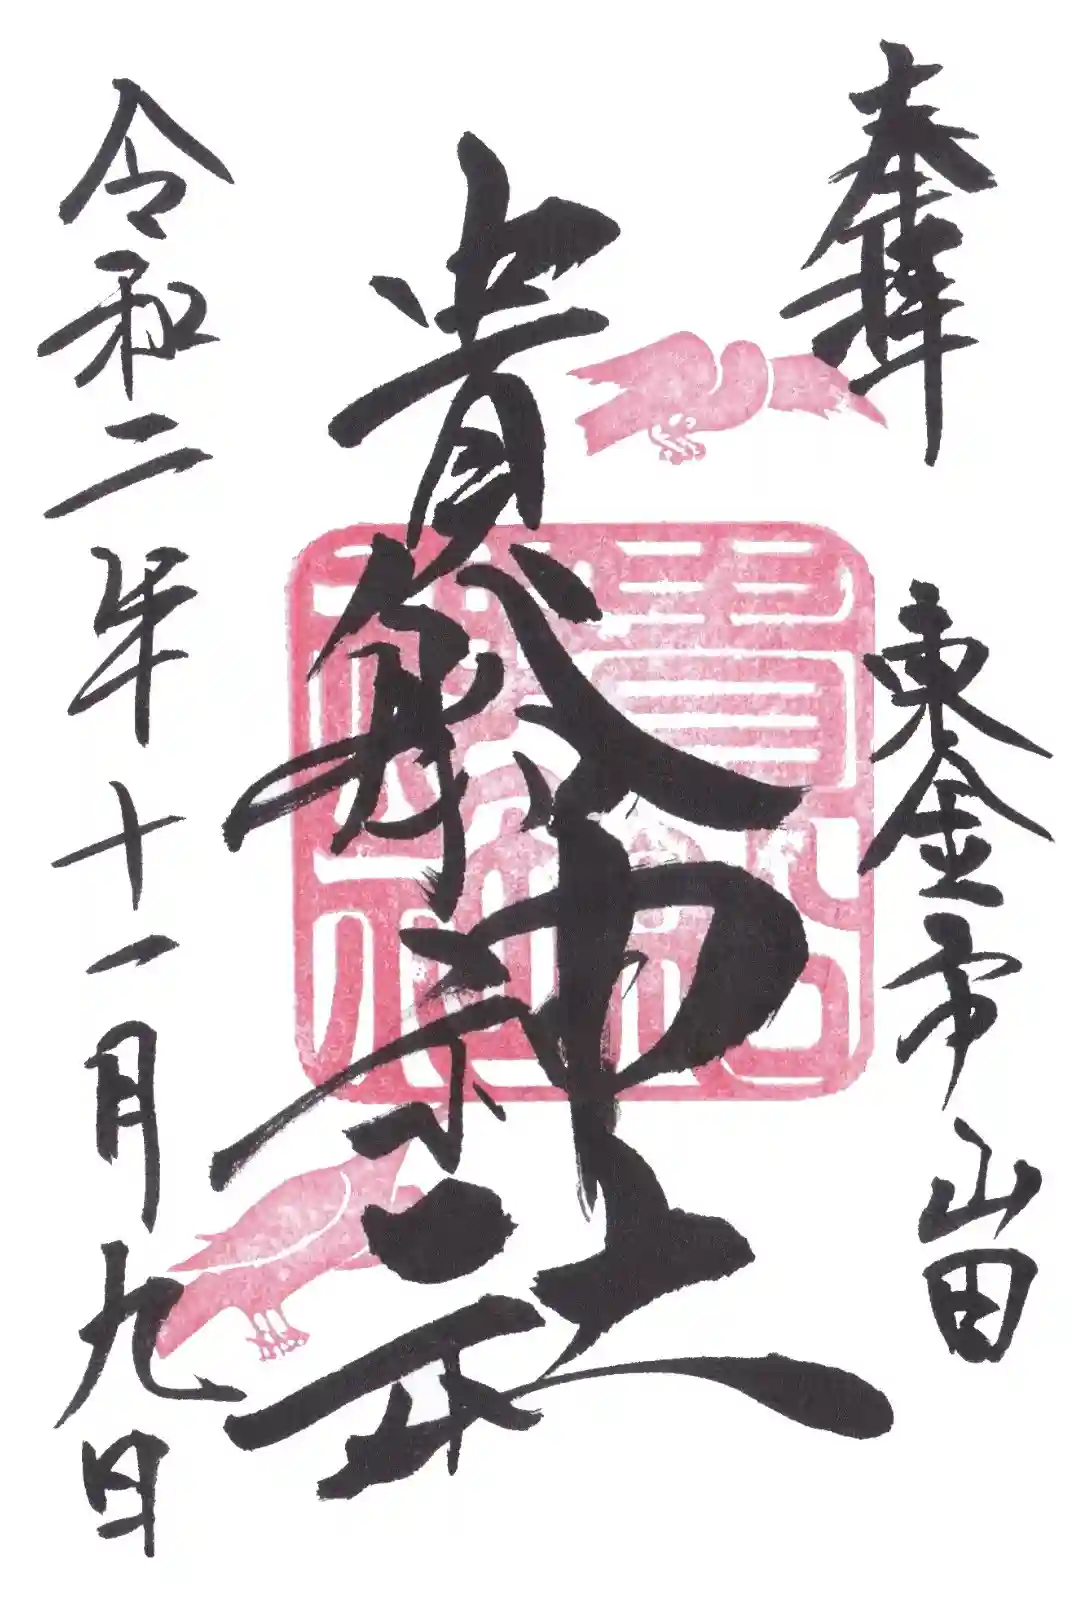 奉拝
東金市山田
貴船神社
令和二年十一月九日